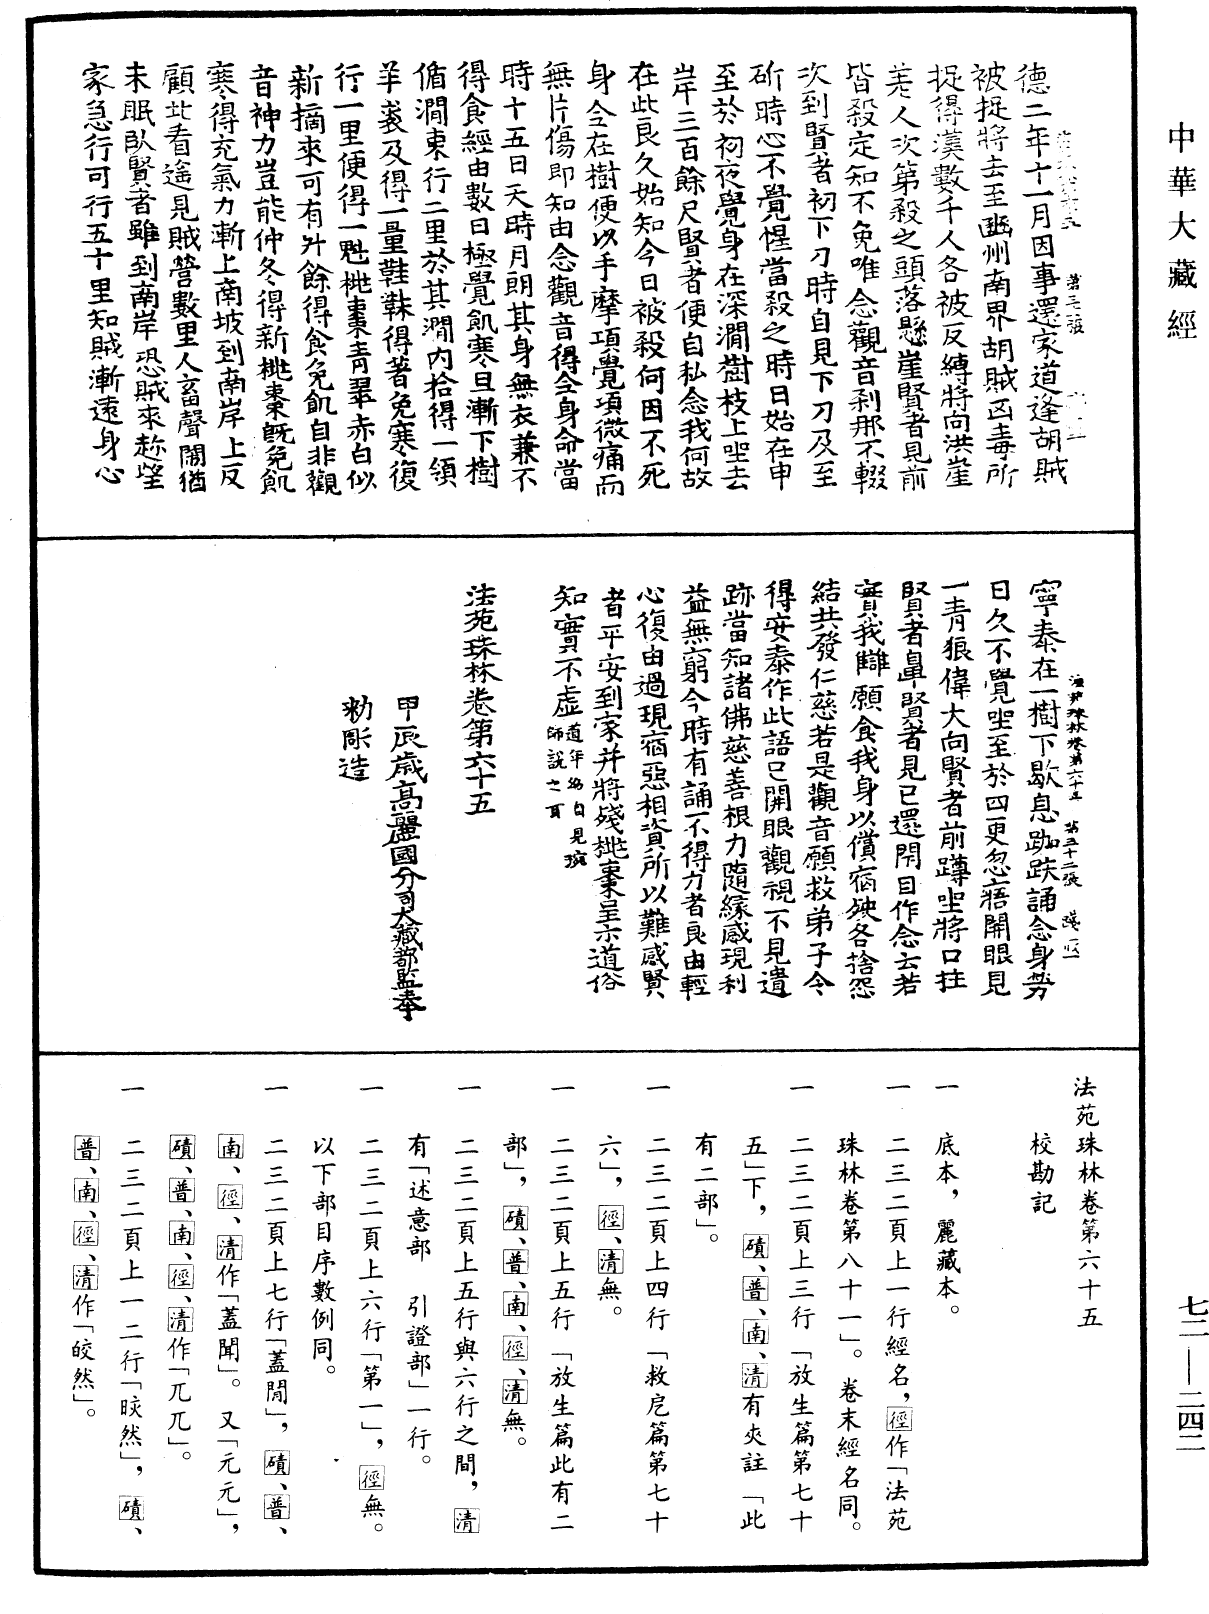 中華大藏經
德二年十一月因事還家道逢胡賊
被捉將去至豳州南界胡賊凶毒所
捉得漢數千人各被反縛將向洪崖
差人次第殺之頭落懸崖賢者見前
皆殺定知不免唯念觀音剎那不輟
次到賢者初下刀時自見下刀及至
斫時心不覺惺當殺之時日始在申
至於初夜覺身在深澗樹枝上坐去
岸三百餘尺賢者便自私念我何故
在此良久始知今日被殺何因不死
身今在樹便以手摩項覺項微痛而
無片傷即知由念觀音得全身命當
時十五日天時月朗其身無衣兼不
得食經由數日極覺飢寒旦漸下樹
循澗東行二里於其澗內拾得一領
羊裘及得一量鞋靺得著免寒復
行一里便得一魁桃棗青翠赤白似
新摘來可有升餘得食免飢自非觀
音神力豈能仲冬得新桃棗既免飢
寒得充氣力漸上南坡到南岸上反
顧北看遙見賊營數里人畜聲鬧猶
未眠臥賢者雖到南岸恐賊來趂望
家急行可行五十里知賊漸遠身心
寧泰在一樹下歇息跏趺誦念身勞
日久不覺坐至於四更忽寤開眼見
一青狼偉大向賢者前蹲坐將口拄
賢者鼻賢者見已還閇目作念云若
實我讎願食我身以償宿殃各捨怨
結共發仁慈若是觀音願救弟子令
得安泰作此語已開眼觀視不見遺
跡當知諸佛慈善根力隨緣感現利
益無窮今時有誦不得力者良由輕
心復由過現宿惡相資所以難感賢
者平安到家并將殘桃棗呈示道俗
知實不虛道年幼自見琬師說之耳
法苑珠林卷第六十五
甲辰歲高麗國分司大藏都監奉
勅彫造
法苑珠林卷第六十五
校勘記
一　底本，麗藏本。
一　二三二頁上一行經名，徑作「法苑
珠林卷第八十一」。卷末經名同。
一　二三二頁上三行「放生篇第七十
五」下，磧、普、南、清有夾註「此
有二部」。
一　二三二頁上四行「救厄篇第七十
六」，徑、清無。
一　二三二頁上五行「放生篇此有二
部」，磧、普、南、徑、清無。
一　二三二頁上五行與六行之間，清
有「述意部　引證部」一行。
一　二三二頁上六行「第一」，徑無。
以下部目序數例同。
一　二三二頁上七行「蓋聞」，磧、普、
南、徑、清作「蓋聞」。又「元元」，
磧、普、南、徑、清作「兀兀」。
一　二三二頁上一二行「晈然」，磧、
普、南、徑、清作「皎然」。
七二—二四二